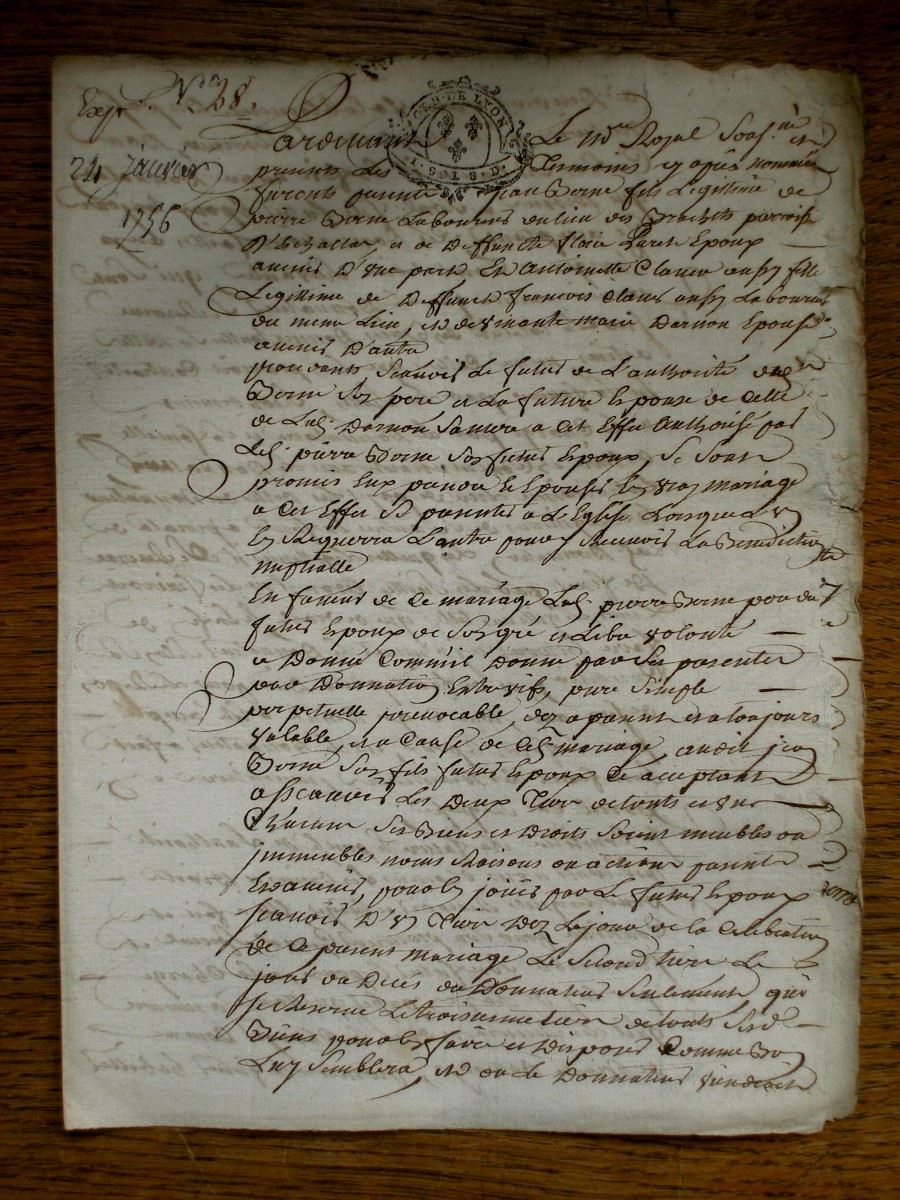 Expé. N° 28.
24 janvier
1756
GEN DE LYON
1. SOLS 8. D.
Pardevant Le no.re Royal Sousné. et
presents Les Temoins cy après nommés
furent presents jean fils Legitime de
pierre Laboureur du lieu des Brachets paroisse
D'Echallas, et de Deffuncte Epoux
avenir D'une part Et Antoinette aussy fille
Legitime de Deffunct françois aussy Laboureur
du meme Lieu, et de vivante marie Darnon Epouse
avenir D'autre
procedants scavoir Le futur de L'authorité dud.
son pere et La future Epouse de Celle
de Lad. Darnon sa mere a Cet Effet Authorisé par
Led. pierre son futur Epoux, Se sont
promis Eux prendre et Epouser En vray mariage
a Cet Effet Se presenter a L'Eglise Lorsque L'un
En Requerra L'autre pour y Recevoir La Benediction
nuptialle
En faveur de Ce mariage Led. pierre pere du
futur Epoux de son gré et Libre volonté
a Donné Comme il Donne par Ses presentes
par Donnation Entrevifs, pure Simple
perpetuelle jrrevocable, dez a present et a toujours
valable, et a Cause de Ced. mariage, audit jean
son fils futur Epoux Ce acceptant
a scavoir Les Deux Tiers de touts et un
Chacun Ses Biens et Droits Soient meubles ou
jmmeubles noms Raisons ou actions presents
Et avenir, pour En jouir par Le futur Epoux
scavoir D'un Tier Dez Le jour de la Celebration
de Ce present mariage Le Second tiers Le
jour du Decés du Donnateur Seulement qui
se Reserve Le troisieme tier de touts Sesd.
Biens pour En faire et Disposer Comme Bon
Luy Semblera, et ou Le Donnateur viendroit